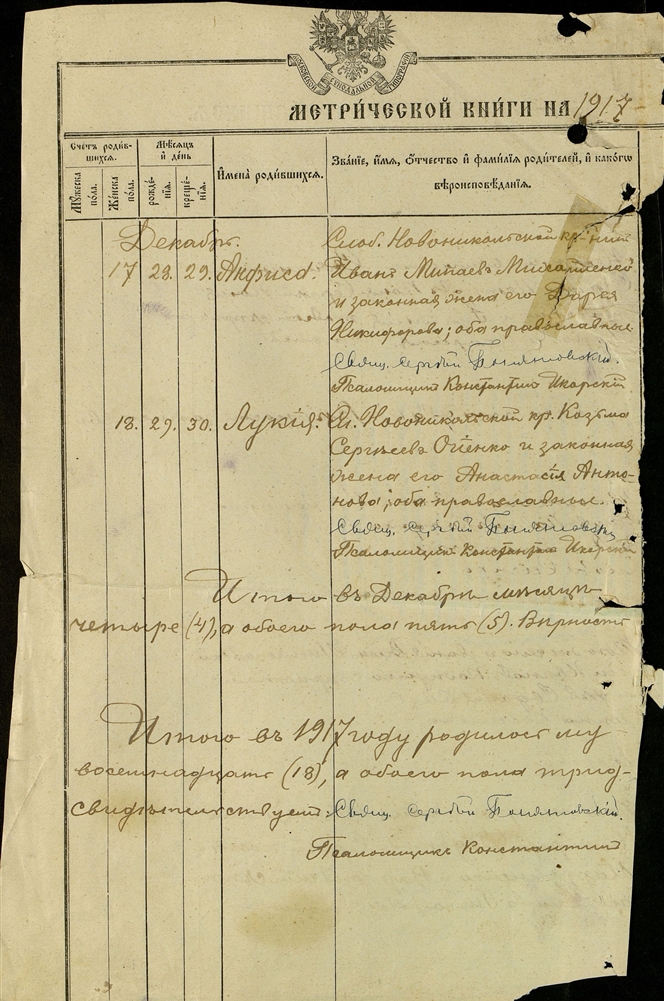 МОСКОВСКОЙ СѴНОДАЛЬНОЙ ТИПОГРАФІИ
МЕТРИ́ЧЕСКОЙ КНИ́ГИ НА 1917
Счетъ роди́в-
шихся.
Мѣсяцъ
и҆ де́нь
Му́жеска
по́ла.
Же́нска
по́ла.
рожде́-
нїя.
креще́-
нїя.
И҆мена̀ роди́вшихся.
Зва́нїе, и҆́мя, ѻ҆́тчество и҆ фами́лїя роди́телей, и҆ како́гѡ
вѣроисповѣ́данїя.
Декабрь.
17 28. 29. Анфиса.
Слоб. Новоникольской кр-нин
Иванъ Минаевъ
и законная жена его Дарья
Никифорова; оба православные
Свящ. Сергѣй Понятовскій.
Псаломщикъ Константинъ Икорскій
18. 29. 30. Лукія.
Сл. Новоникольской кр. Козьма
Сергѣевъ и законная
жена его Анастасія Анто-
нова; оба православные.
Свящ. Сергѣй Понятовскій
Псаломщикъ Константинъ Икорскій
Итого въ Декабрѣ мѣсяцѣ
четыре (4), а обоего пола пять (5). Вѣрность
Итого въ 1917 году родилось му
восемнадцать (18), а обоего пола трид-
свидѣтельствуемъ: Свящ. Сергѣй Понятовскій.
Псаломщикъ Константинъ